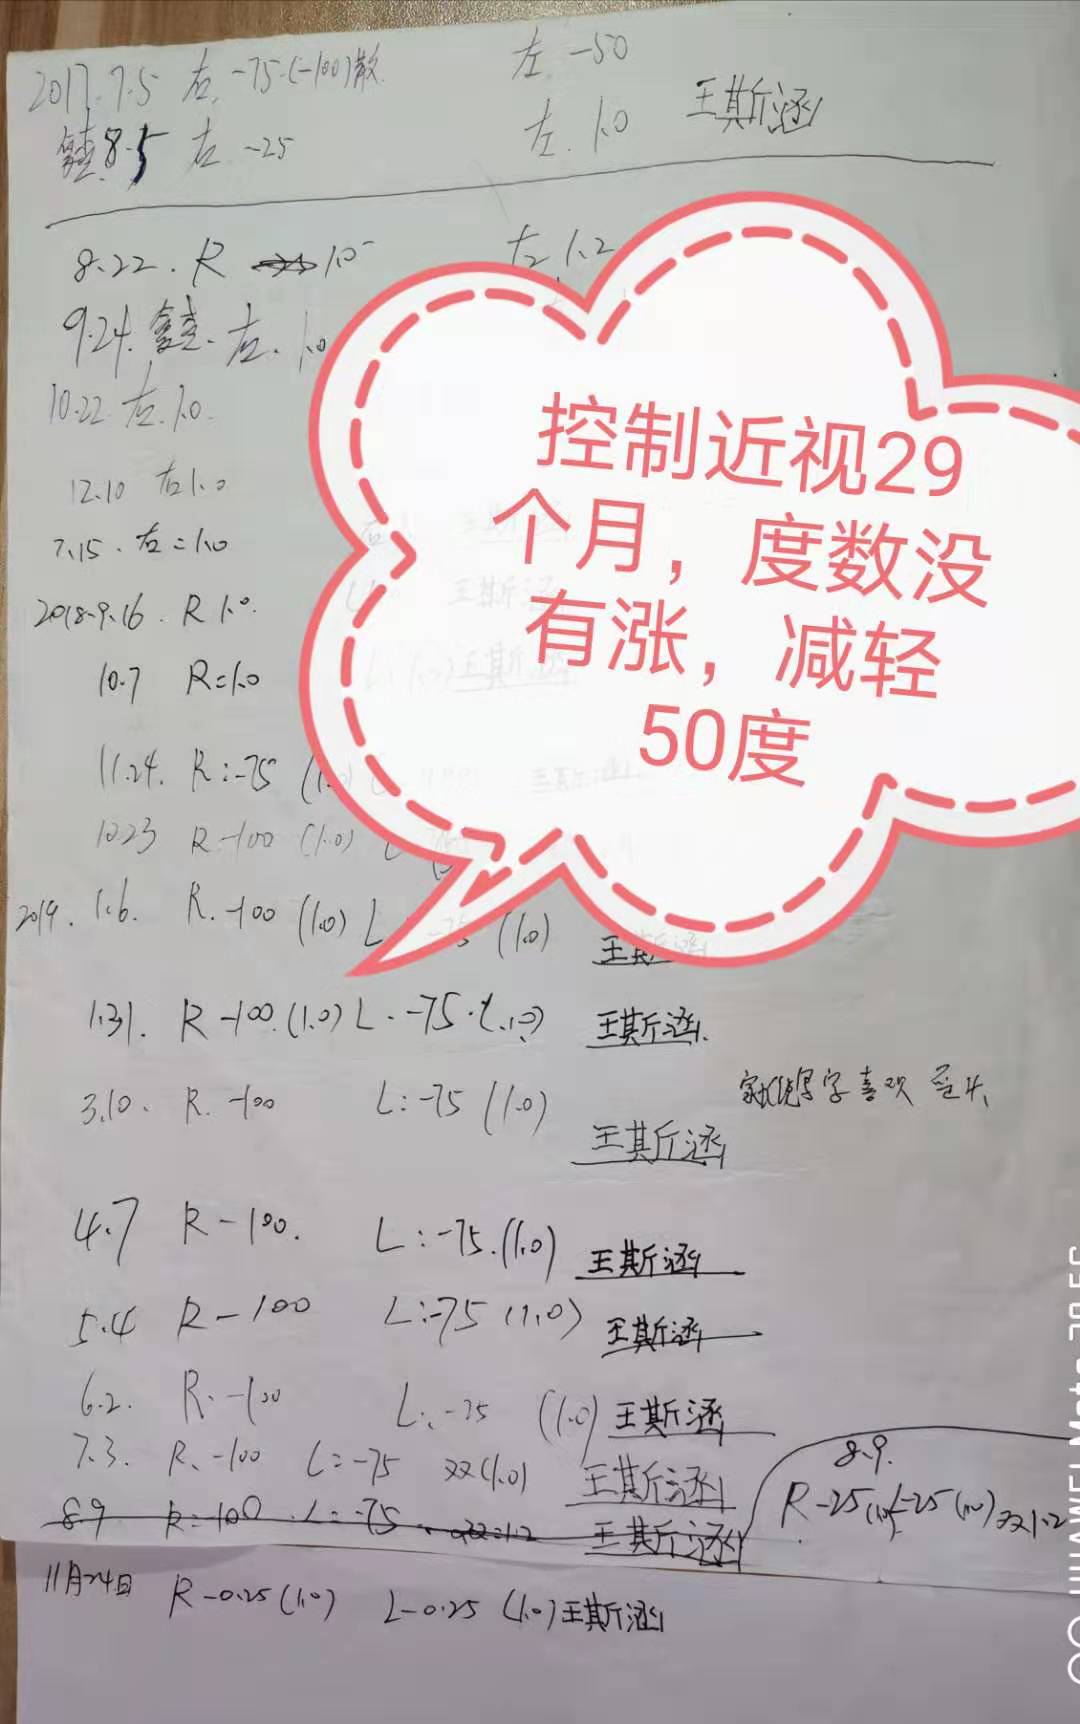 2017.7.5 右.-75.(-100)散 左.-50
8.5 右 -25 左.1.0 王斯涵
8.22. R 1.0- 左 1.2
9.24. 右.1.0
10.22 右.1.0.
12.10 右1.0
7.15. 右=1.0
2018.9.16. R 1.0.
10.7 R=1.0
11.24. R:-75 (1.0)
10.23 R-100 (1.0) L
控制近视29
个月，度数没
有涨，减轻
50度
2019. 1.6. R.-100 (1.0) L -75 (1.0) 王斯涵
1.31. R-100.(1.0) L.-75.(1.0) 王斯涵
3.10. R.-100 L:-75 (1.0) 王斯涵
写字喜欢
4.7 R-100. L:-75.(1.0) 王斯涵
5.4 R-100 L:-75 (1.0) 王斯涵
6.2. R.-100 L:-75 (1.0) 王斯涵
7.3. R.-100 L=-75 双(1.0) 王斯涵
8.9 R:-100 L:-75. 双=1.2 王斯涵
8.9.
R-25(1.0) L-25(1.0) 双1.2
11月24日 R-0.25(1.0) L-0.25 (1.0) 王斯涵
HUAWEI Mate 20